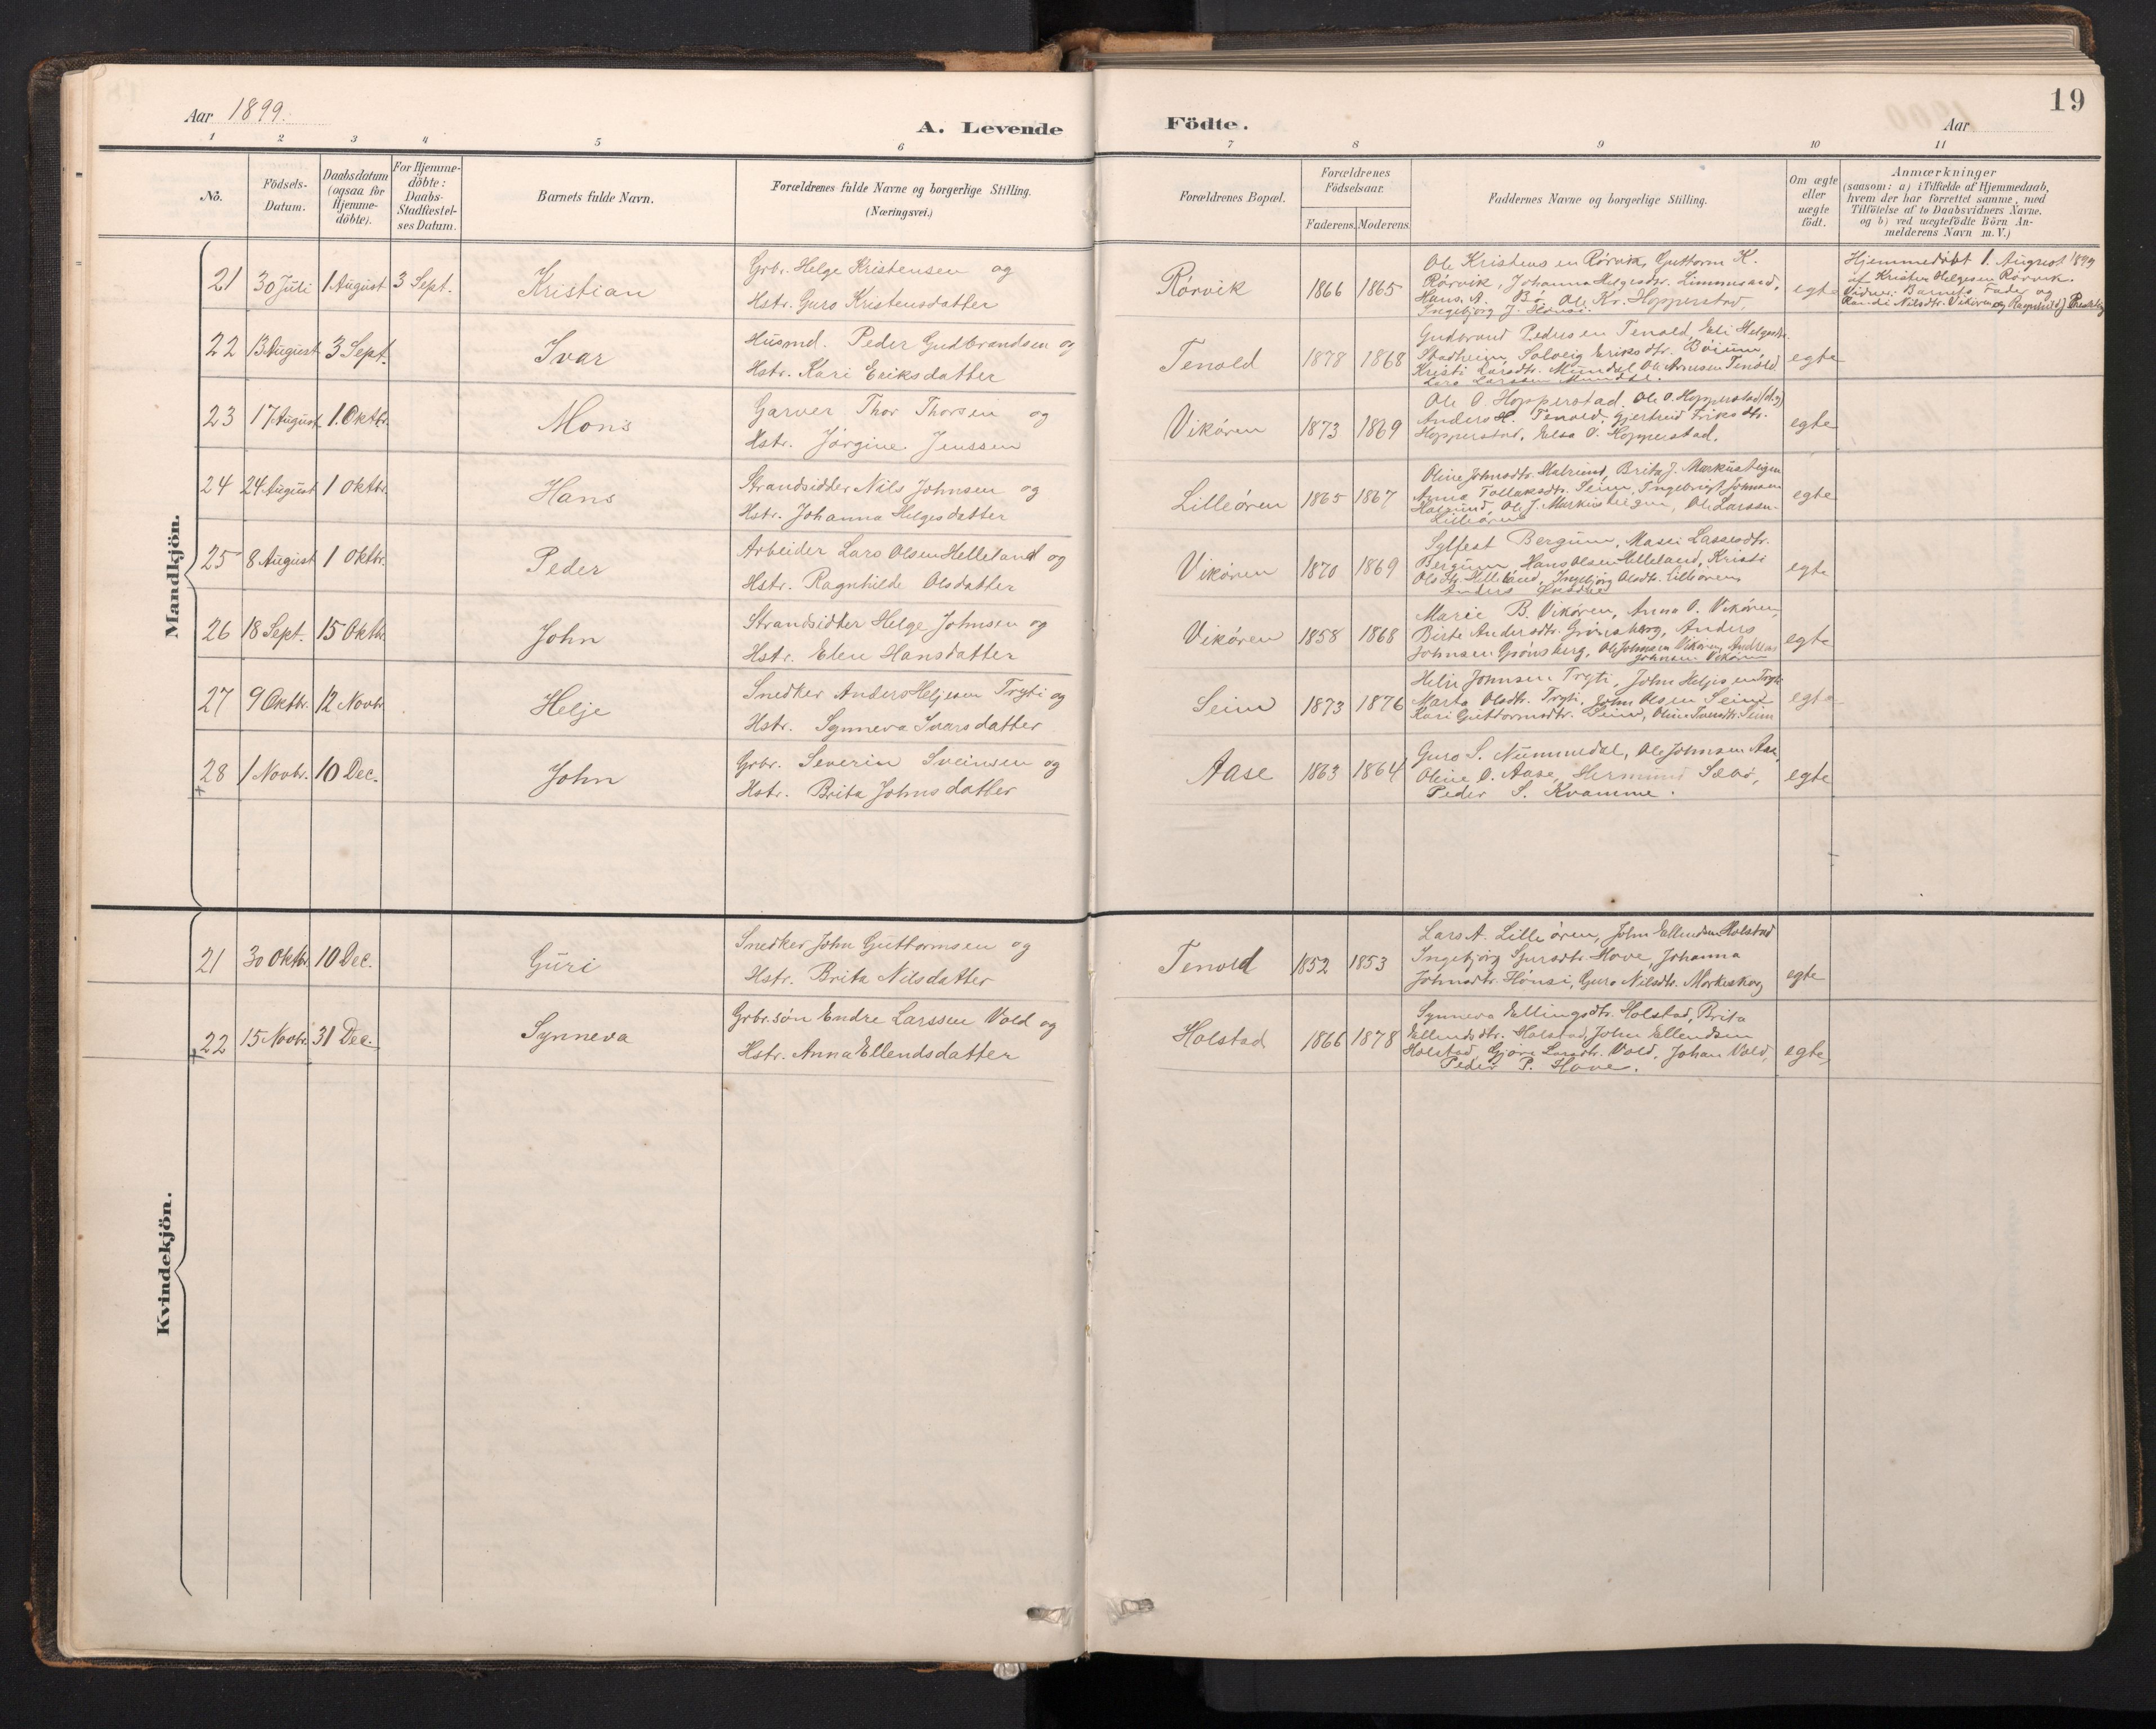 19
Aar 1899.
A. Levende Födte.
Aar
1 2 3 4 5 6 7 8 9 10 11
No.
Födsels-
Datum.
Daabsdatum
(ogsaa for
Hjemme-
döbte).
For Hjemme-
döbte:
Daabs-
Stadfæstel-
ses Datum.
Barnets fulde Navn.
Forældrenes fulde Navne og borgerlige Stilling.
(Næringsvei.)
Forældrenes Bopæl.
Forældrenes
Födselsaar.
Faderens. Moderens.
Faddernes Navne og borgerlige Stilling.
Om ægte
eller
uægte
födt.
Anmærkninger
(saasom: a) i Tilfælde af Hjemmedaab,
hvem der har forrettet samme, med
Tilföielse af to Daabsvidners Navne.
og b) ved uægtefödte Börn An-
melderens Navn m. V.)
Mandkjön.
21 30 Juli 1 August 3 Sept. Kristian
Grbr. Helge Kristensen og
Hstr. Guro Kristensdatter
Rörvik 1866 1865
Ole Kristensen Rörvik, Guttorm K.
Rörvik, Johanna Helgesdtr. Limmesand,
Hans A. Bö, Ole Kr. Hopperstad,
Ingebjörg J. Hönsi.
egte
Hjemmedöbt 1. August 1899
af Kristen Helgesen Rörvik.
Vidner: Barnets Fader og
Randi Nilsdtr. Vikören og Ragnhild J.
22 13 August 3 Sept. Ivar
Husmd. Peder Gudbrandsen og
Hstr. Kari Eriksdatter
Tenold 1878 1868
Gudbrand Pedersen Tenold, Eli Helgesdtr.
Stadheim, Solveig Eriksdtr. Böium,
Kristi Larsdtr. Mundal, Ole Arnesen Tenold,
Lars Larssen Mundal.
egte
23 17 August 1. Oktbr. Mons
Garver Thor Thorsen og
Hstr. Jörgine Jenssen
Vikören 1873 1869
Ole O. Hopperstad, Ole O. Hopperstad (d.y)
Anders H. Tenold, Gjertrud Eriksdtr.
Hopperstad, Elsa O. Hopperstad.
egte
24 24 August 1 Oktbr. Hans
Strandsidder Nils Johnsen og
Hstr. Johanna Helgesdatter
Lilleören 1865 1867
Oline Johnsdtr. Brita J.
Anna Tollaksdtr. Seim, Ingebrigt Johnsen
Ole J. Ole Larssen
Lilleören
egte
25 8 August 1 Oktbr. Peder
Arbeider Lars Olsen Helleland og
Hstr. Ragnhilde Olsdatter
Vikören 1870 1869
Sylfest Bergum, Masei Lassesdtr.
Bergum, Hans Olsen Helleland, Kristi
Olsdtr. Helleland, Ingebjörg Olsdtr. Lilleören,
Anders
egte
26 18 Sept. 15 Oktb. John
Strandsidder Helge Johnsen og
Hstr. Elen Hansdatter
Vikören 1858 1868
Marie B. Vikören, Anna O. Vikören,
Birte Andersdtr. Grönsberg, Anders
Johnsen Grönsberg, Ole Johnsen Vikören, Andreas
Johnsen Vikören
egte
27 9 Oktbr. 12 Novbr. Helje
Snedker Anders Heljesen Tryti og
Hstr. Synneva Ivarsdatter
Seim 1873 1876
Helje Johnsen Tryti, John Heljesen Tryti
Marta Olsdtr. Tryti, John Olsen Seim
Kari Guttormsdtr. Seim, Oline Ivarsdtr. Seim
egte
28 1 Novbr. 10 Dec. John
Grbr. Severin Sveinsen og
Hstr. Brita Johnsdatter
Aase 1863 1864
Guro S. Nummedal, Ole Johnsen Aase,
Oline O. Aase, Hermund Sæbö,
Peder S. Kvamme.
egte
Kvindekjön.
21 30 Oktbr. 10 Dec. Guri
Snedker John Guttormsen og
Hstr. Brita Nilsdatter
Tenold 1852 1853
Lars A. Lilleören, John Ellendsen Holstad
Ingebjörg Sjursdtr. Hove, Johanna
Johnsdtr. Hönsi, Guro Nilsdtr. Morkeskog
egte
22 15 Novbr. 31 Dec. Synneva
Grbr.sön Endre Larssen Vold og
Hstr. Anna Ellendsdatter
Holstad 1866 1878
Synneva Ellingsdtr. Holstad, Brita
Ellendsdtr. Holstad, John Ellendsen
Holstad, Gjöri Larsdtr. Vold, Johan Vold,
Peder P. Hove.
egte